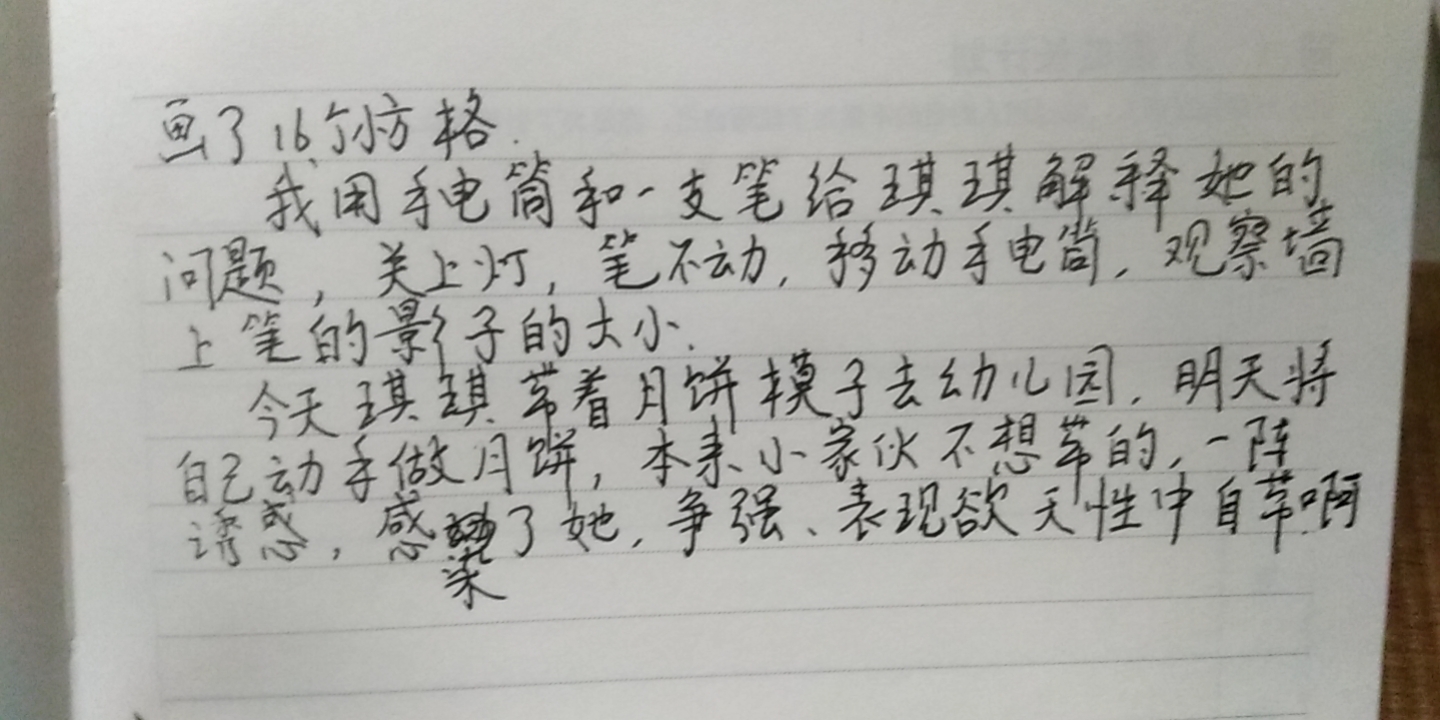 画了16个小方格.
我用手电筒和一支笔给琪琪解释她的
问题，关上灯，笔不动，移动手电筒，观察墙
上笔的影子的大小.
今天琪琪带着月饼模子去幼儿园，明天将
自己动手做月饼，本来小家伙不想带的，一阵
诱惑，感染了她，争强、表现欲天性中自带啊